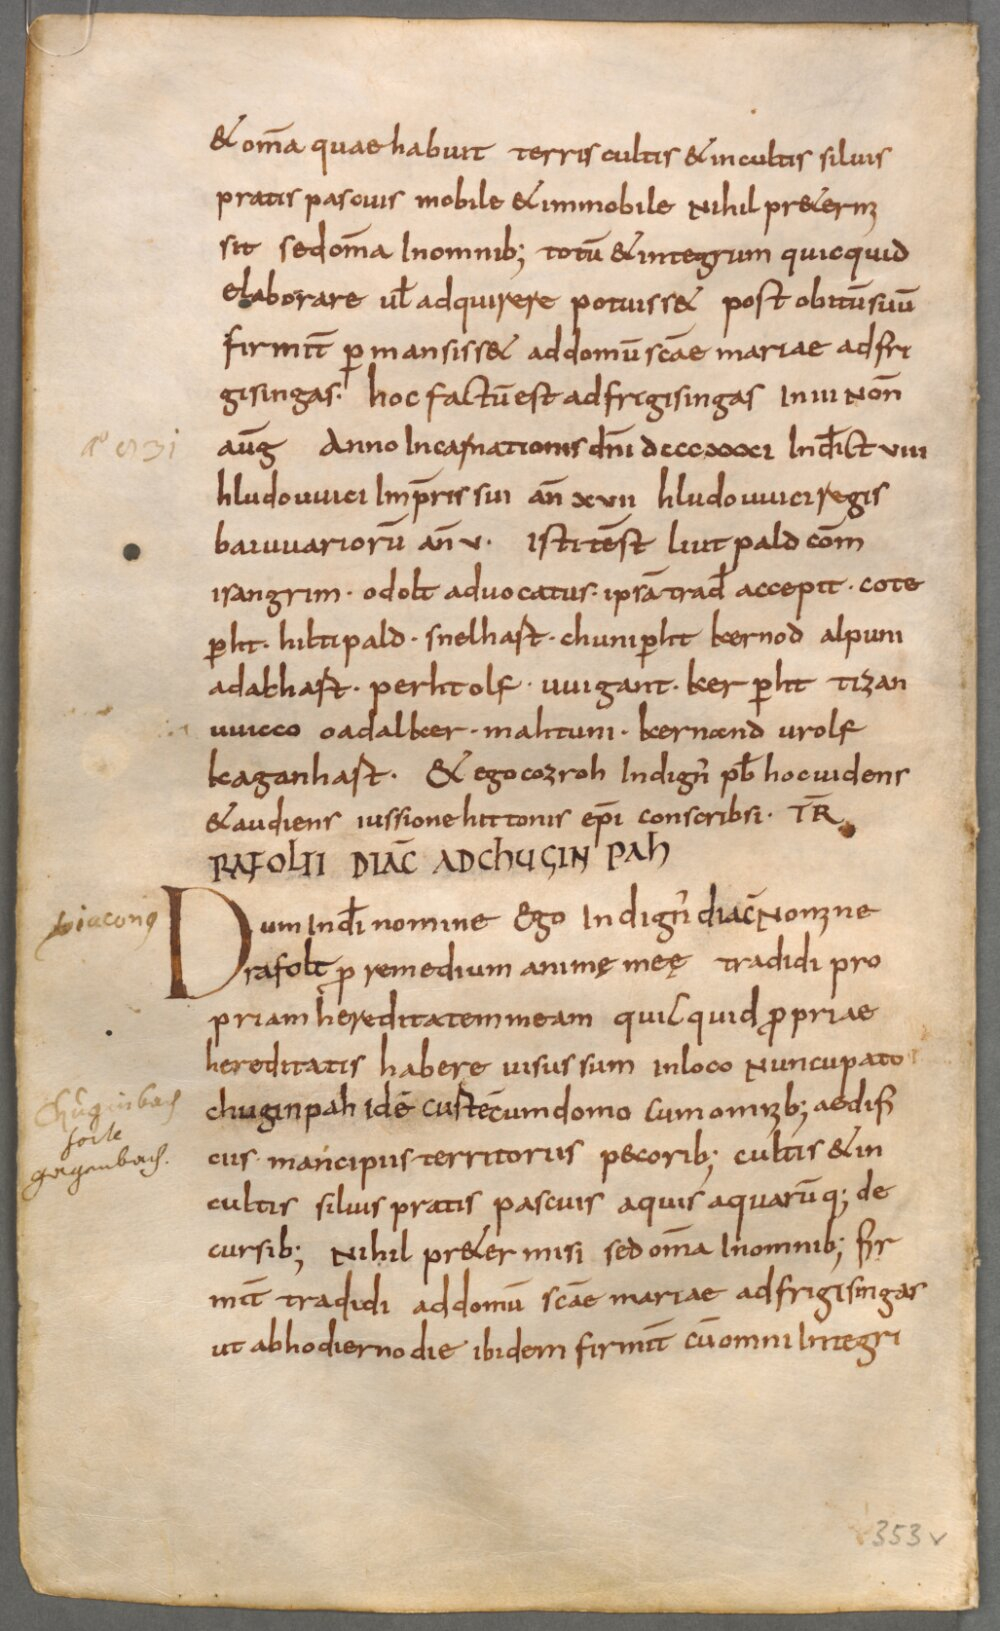 & om̄a quae habuit terris cultis & incultis siluis
pratis pascuis mobile & immobile Nihil pr&ermi
sit sed om̄a In omnib; totū & integrum quicquid
elaborare ul̄ adquirere potuiss& post obitū suū
firmit̄ ꝑmansiss& ad domū sc̄ae mariae ad fri
gisingas. hoc factū est ad frigisingas In iii Noñ
aūg Anno Incarnationis dn̄i dcccxxxi Indīct viiii
hludouuici Imp̄ris sui an̄ xvii hludouuici regis
baiuuariorū an̄ v. Isti test̄ liutpald com̄
isangrim · odolt̄ aduocatus · ipsā trad̄ accepit · cote
ꝑht · hiltipald · snelhast · chuniꝑht kernod alpuni
adalhast · perhtolf · uuigant · kerꝑht tizan
uuicco oadalker · mahtuni · kernand urolf
kaganhast · & ego cozroh Indign̄ pb̄ hoc uidens
& audiens iussione hittonis ep̄i conscribsi · TR̄
RAFOLTI DIAC̄ AD CHUGINPAH
diaconus
Dum In dī nomine Ego Indign̄ diac̄ Nomine
rafolt ꝑ remedium animę meę tradidi pro
priam hereditatem meam quicquid ꝓpriae
hereditatis habere uisus sum in loco Nuncupato
Chuginbach
forte
gegenbach.
chuginpah id ē custē cum domo cum omnib; aedifi
ciis mancipiis territoriis pecorib; cultis & in
cultis siluis pratis pascuis aquis aquarūq; de
cursib; Nihil pr&ermisi sed om̄a In omnib; fir
mit̄ tradidi ad domū sc̄ae mariae ad frigisingas
ut ab hodierno die ibidem firmit̄ cū omni Integri
353v